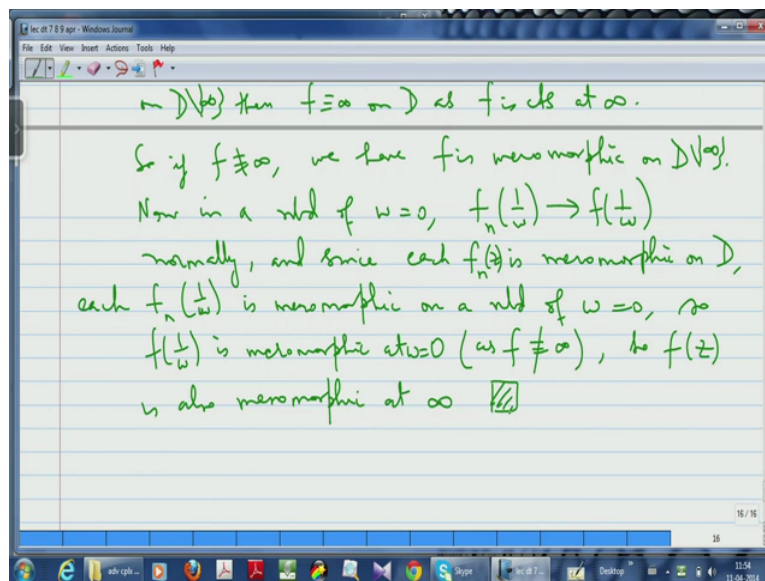 lec dt 7 8 9 apr - Windows Journal
File Edit View Insert Actions Tools Help
on D\{∞} then f ≡ ∞ on D as f is cts at ∞.
So if f ≢ ∞, we have f is meromorphic on D\{∞}.
Now in a nbd of w=0, f_n(1/w) → f(1/w)
normally, and since each f_n(z) is meromorphic on D,
each f_n(1/w) is meromorphic on a nbd of w=0, so
f(1/w) is meromorphic at w=0 (as f ≢ ∞), so f(z)
is also meromorphic at ∞
16 / 16
16
adv cplx ...
Skype
lec dt 7 ...
Desktop
11:54
11-04-2014